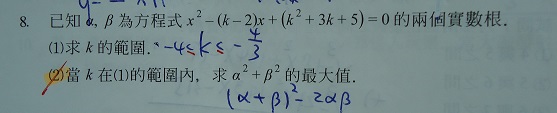 8. 已知 α, β 為方程式 x² − (k − 2)x + (k² + 3k + 5) = 0 的兩個實數根.
(1)求 k 的範圍. −4 ≤ k ≤ −4/3
(2)當 k 在(1)的範圍內, 求 α² + β² 的最大值.
(α + β)² − 2αβ